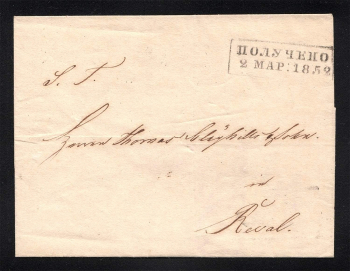 ПОЛУЧЕНО
2 МАР: 1852
S. T.
Herrn Thomas Clayhills & Sohn.
in
Reval.